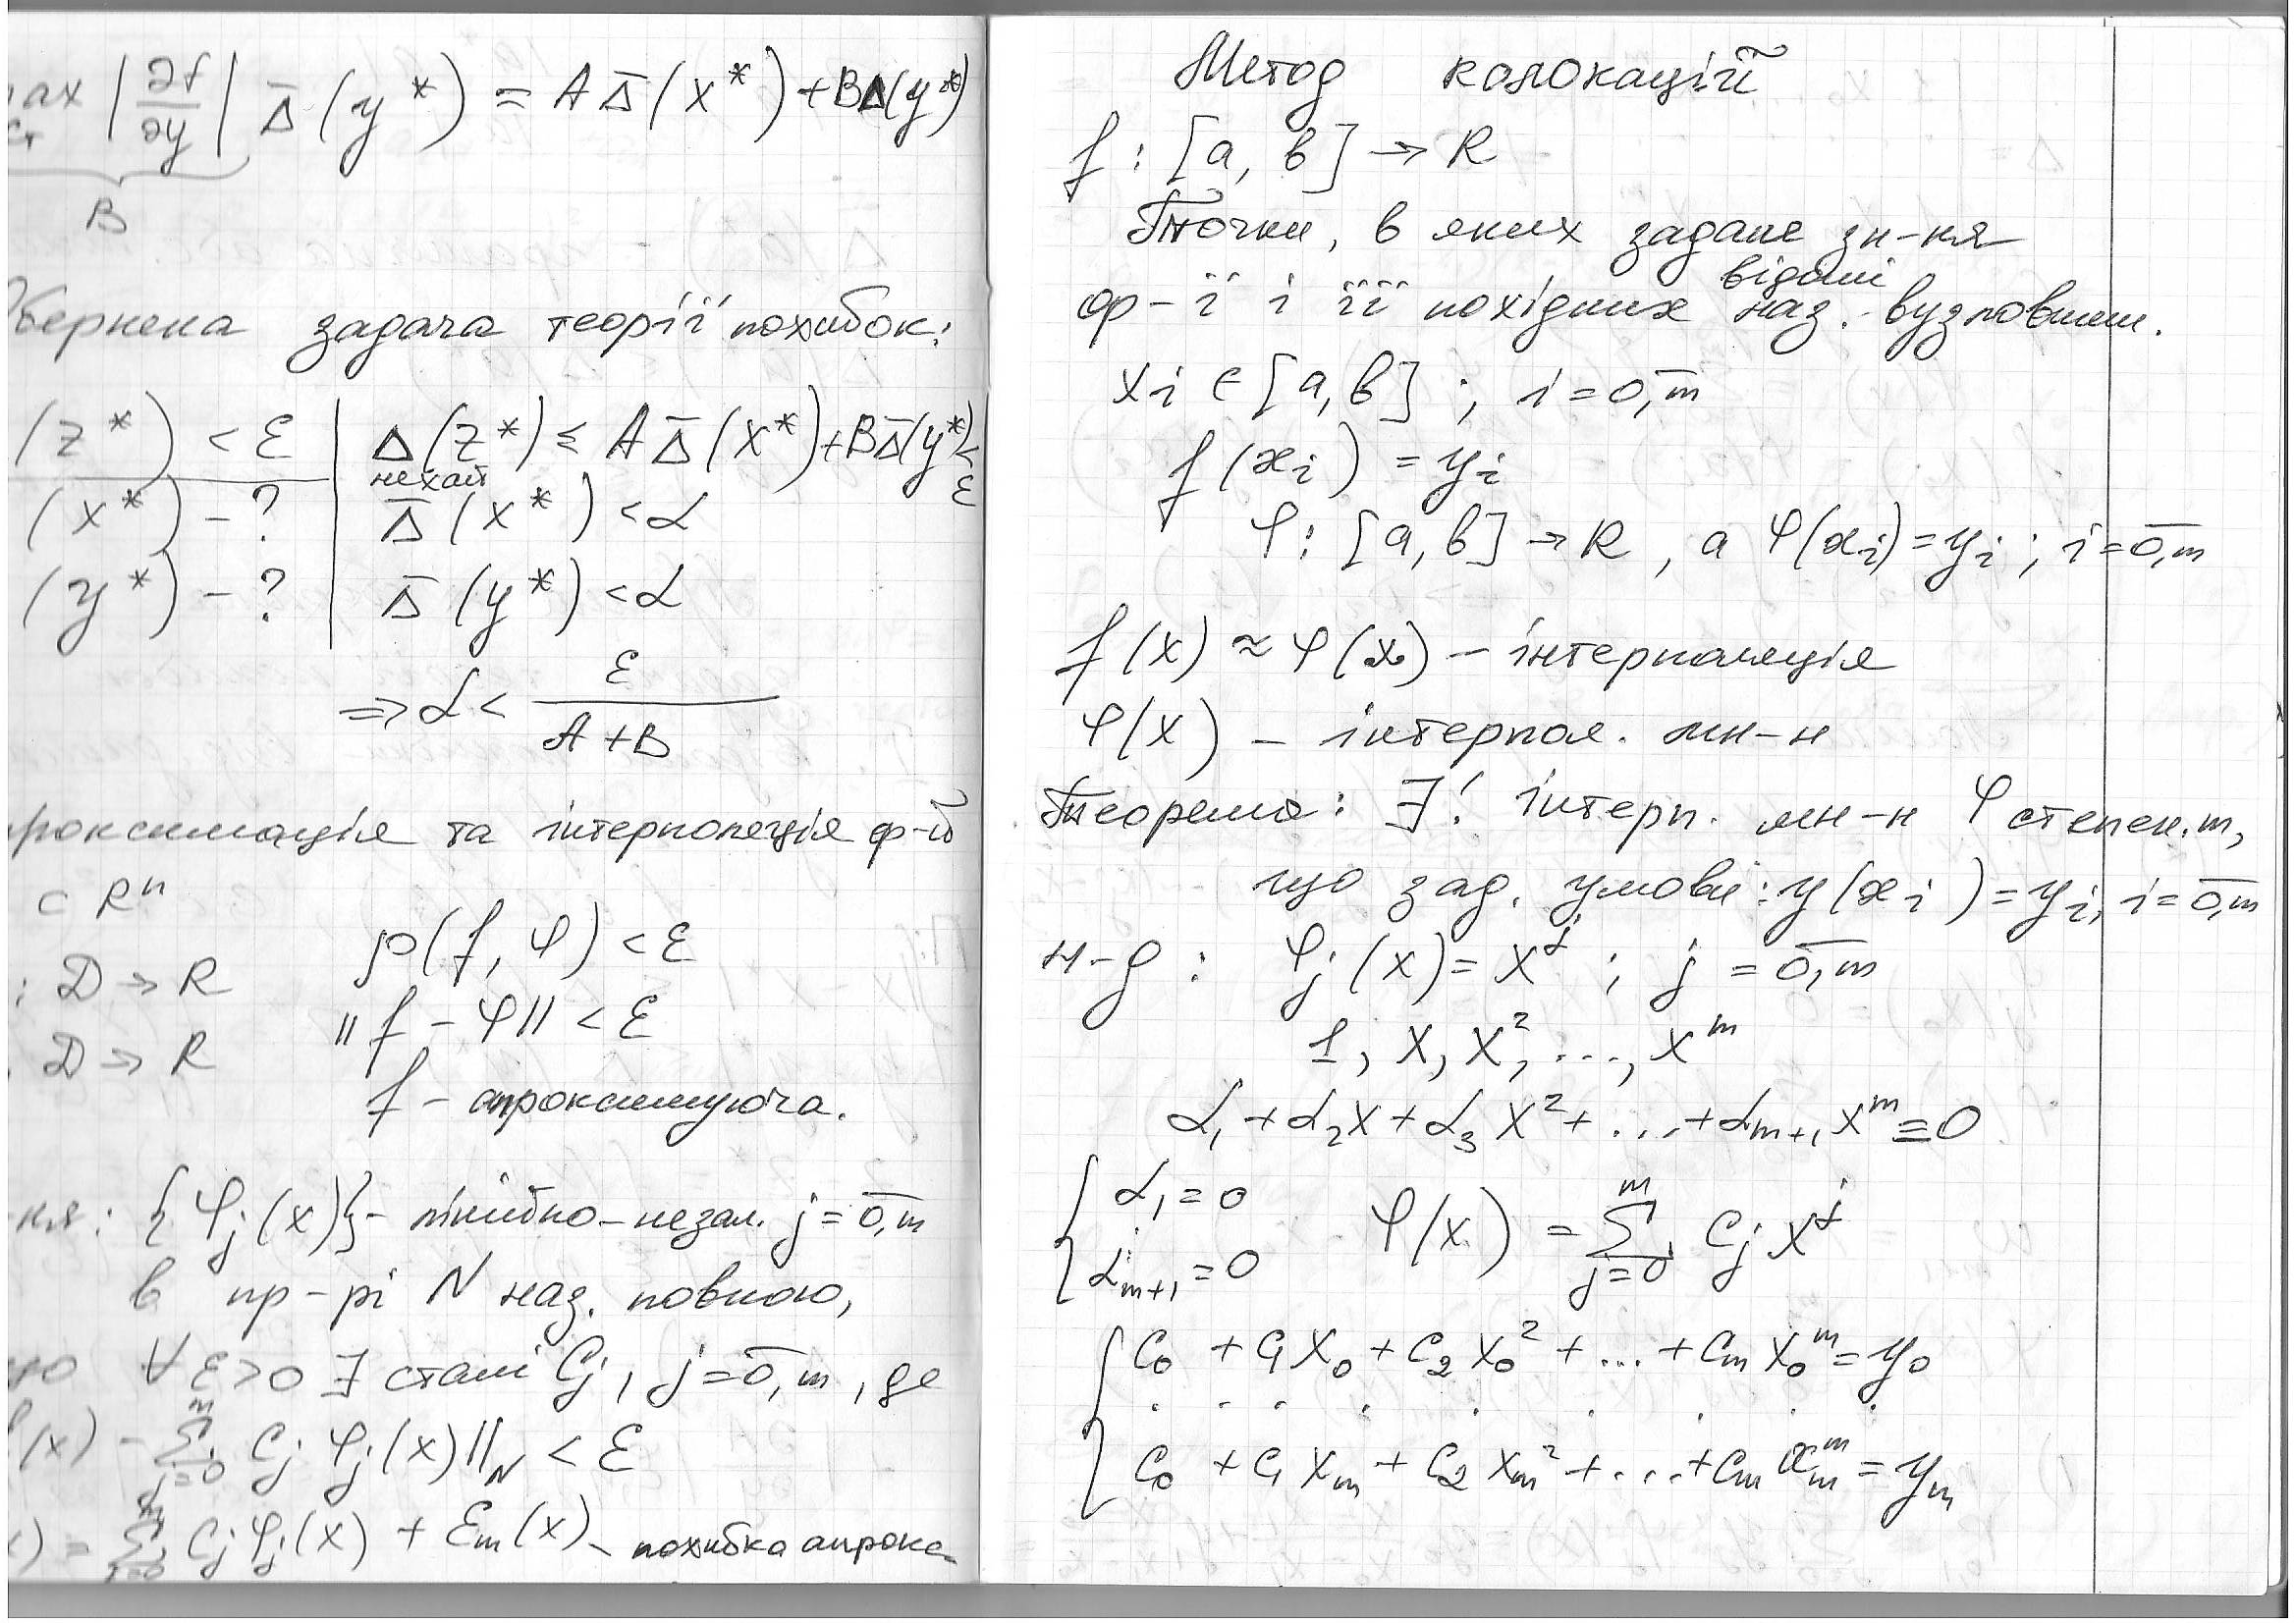 max |∂f/∂y| Δ̄(y*) = A Δ̄(x*) + BΔ(y*)
B
Обернена задача теорії похибок:
(z*) < ε | Δ(z*) ≤ A Δ̄(x*) + BΔ̄(y*) < ε
нехай
(x*) - ? | Δ̄(x*) < α
(y*) - ? | Δ̄(y*) < α
=> α < ε / (A + B)
проксимація та інтерполяція ф-й
⊂ Rⁿ
ρ(f, φ) < ε
: D → R
|| f - φ || < ε
D → R
f - апроксимуюча.
-ня: {φⱼ(x)} - лінійно-незал. j = 0,m̅
в пр-рі N наз. повною,
∀ ε > 0 ∃ сталі Cⱼ, j = 0,m̅, де
(x) - ∑ⱼ₌₀ᵐ Cⱼ φⱼ(x) ||_N < ε
) = ∑ⱼ₌₀ᵐ Cⱼ φⱼ(x) + εₘ(x) - похибка апрокс
Метод колокацій
f : [a, b] → R
Точки, в яких задане зн-ня
відомі
ф-ї і її похідних наз. вузловими.
xᵢ ∈ [a, b] ; i = 0,m̅
f(xᵢ) = yᵢ
φ : [a, b] → R, а φ(xᵢ) = yᵢ ; i = 0,m̅
f(x) ≈ φ(x) - інтерполяція
φ(x) - інтерпол. мн-н
Теорема: ∃! інтерп. мн-н φ степен. m,
що зад. умові: y(xᵢ) = yᵢ, i = 0,m̅
н-д : φⱼ(x) = xʲ ; j = 0,m̅
1, x, x², ..., xᵐ
α₁ + α₂x + α₃x² + ... + αₘ₊₁xᵐ = 0
{ α₁ = 0
⋮
αₘ₊₁ = 0
φ(x) = ∑ⱼ₌₀ᵐ Cⱼ xʲ
{ C₀ + C₁x₀ + C₂x₀² + ... + Cₘx₀ᵐ = y₀
. . . . . . . . .
C₀ + C₁xₘ + C₂xₘ² + ... + Cₘxₘᵐ = yₘ